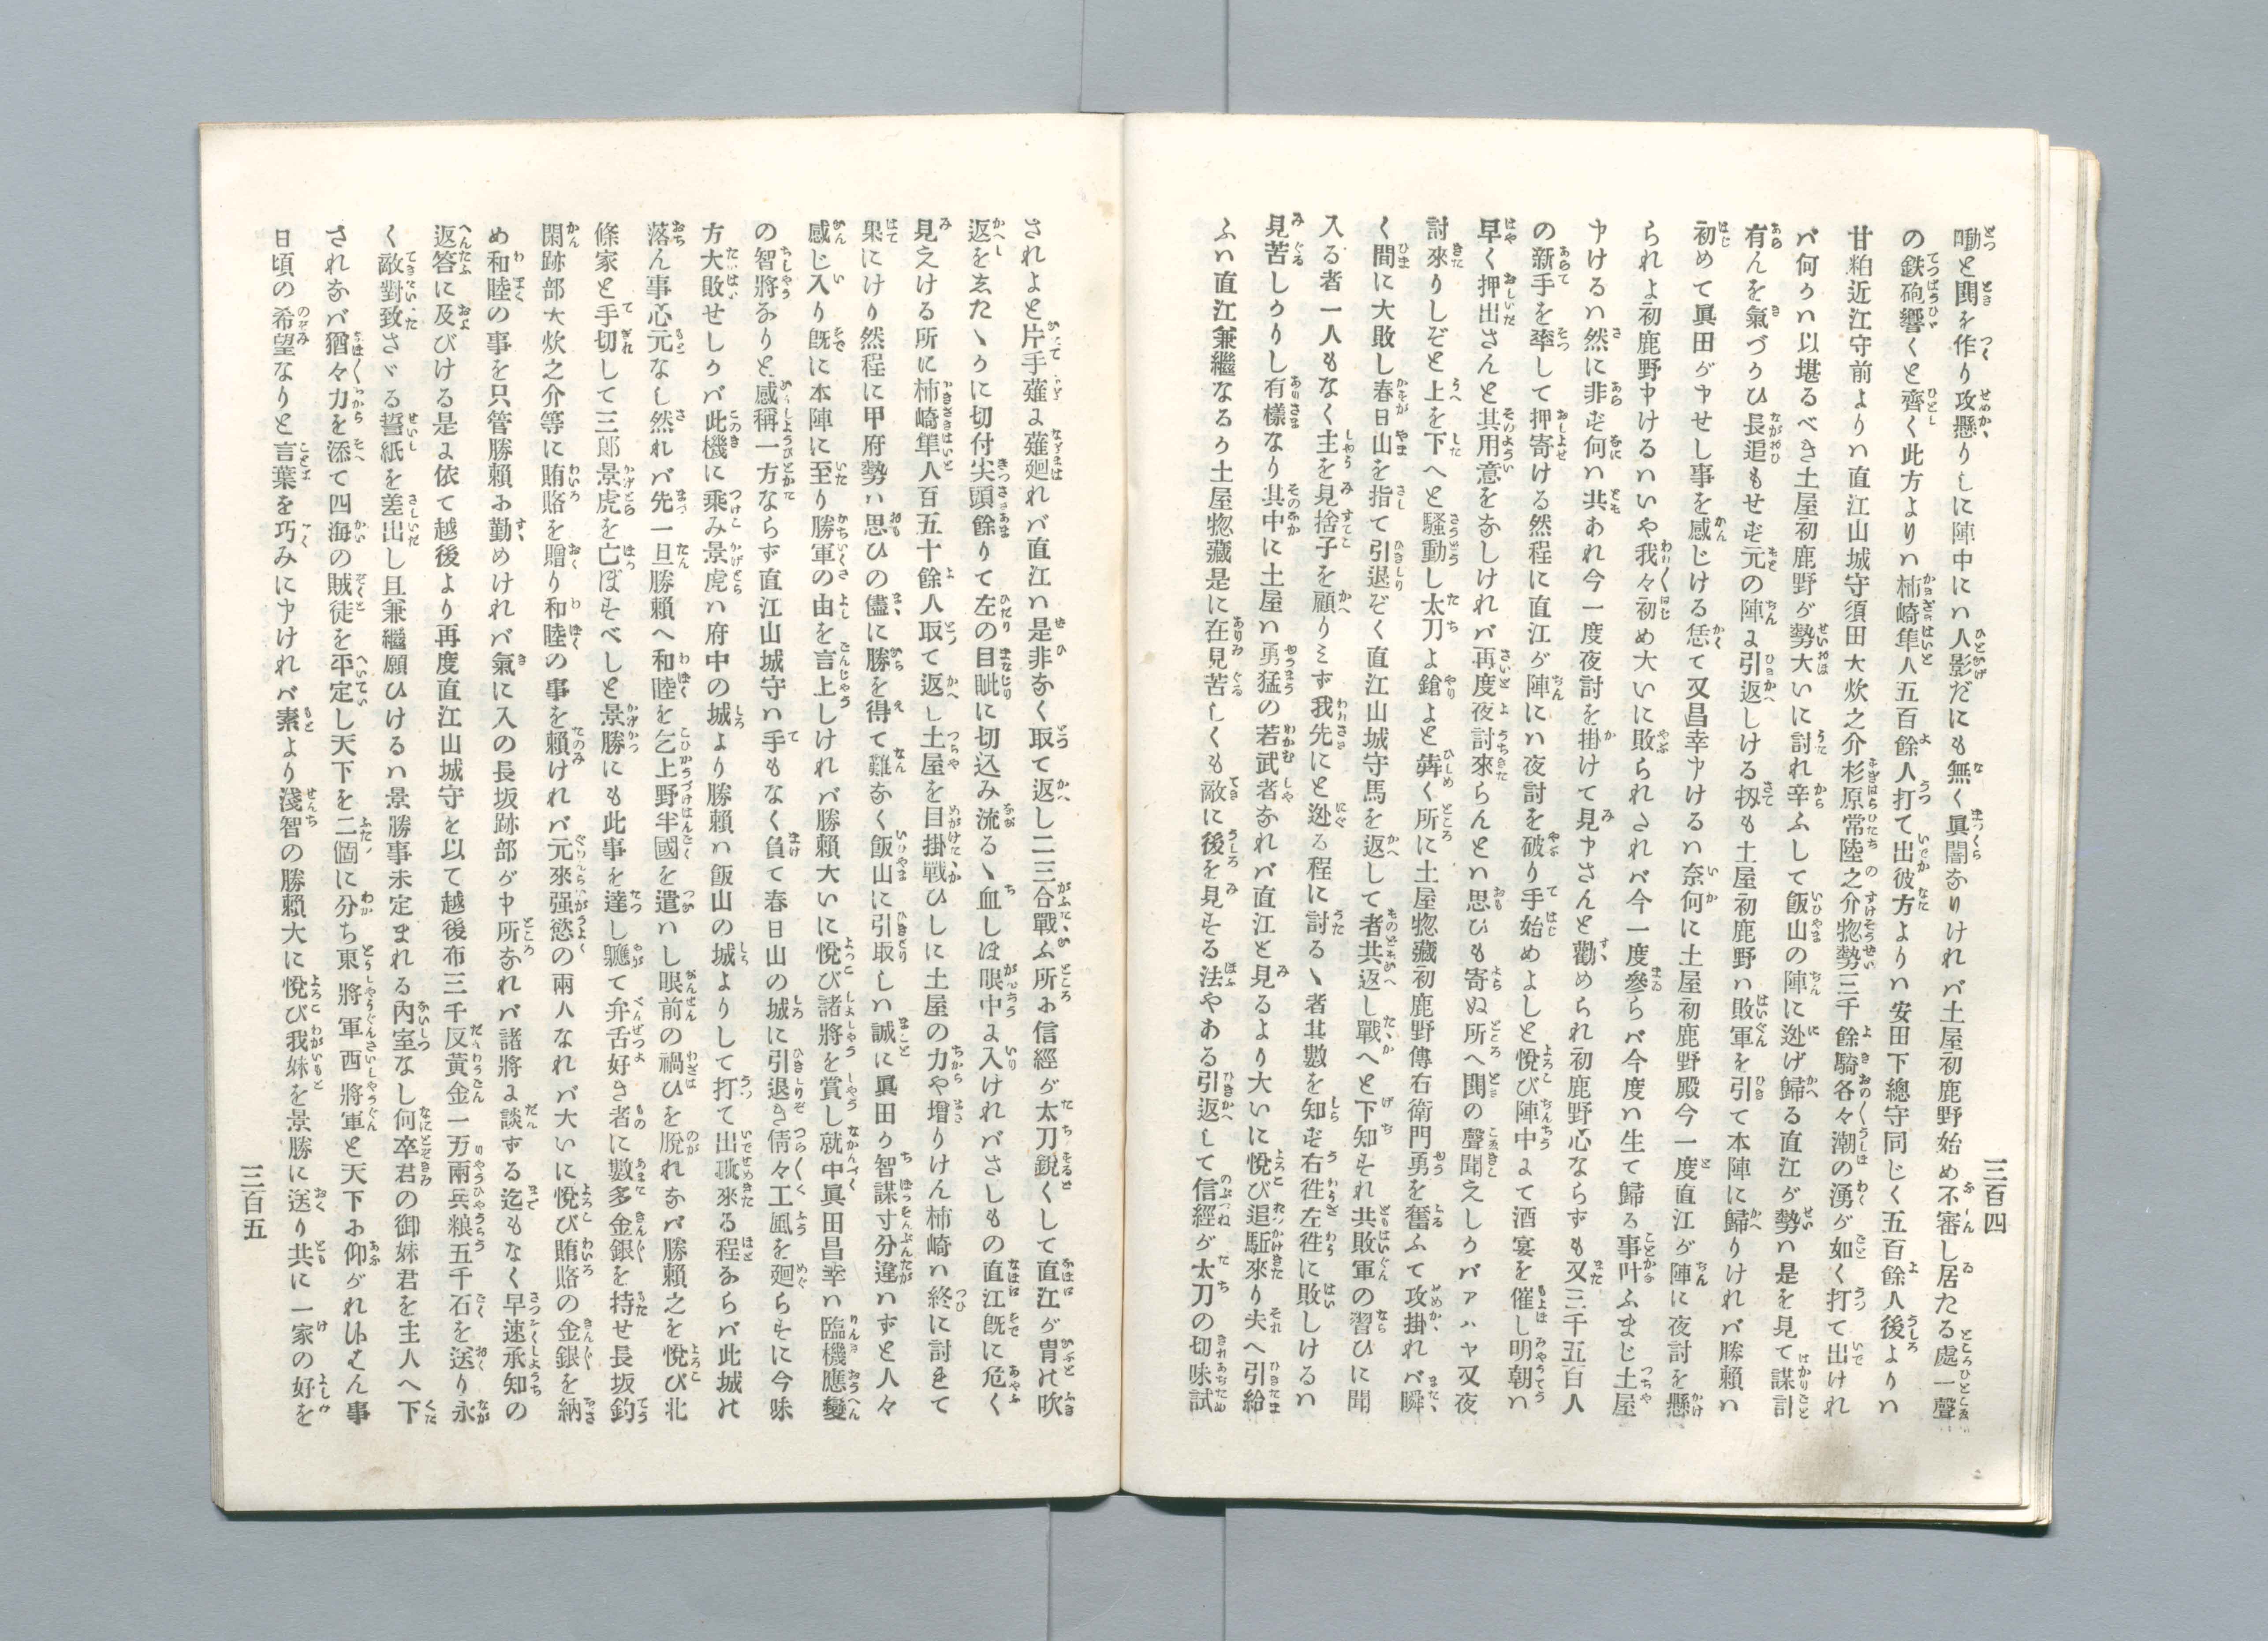 三百四
嘞と鬨を作り攻懸りしに陣中にハ人影だにも無く眞闇なりけれバ土屋初鹿野始め不審し居たる處一聲
の鉄砲響くと齊く此方よりハ柿崎隼人五百餘人打て出彼方よりハ安田下總守同じく五百餘人後よりハ
甘粕近江守前よりハ直江山城守須田大炊之介杉原常陸之介惣勢三千餘騎各々潮の湧が如く打て出けれ
バ何かハ以堪るべき土屋初鹿野が勢大いに討れ辛ふして飯山の陣に迯げ歸る直江が勢ハ是を見て謀計
有んを氣づかひ長追もせず元の陣に引返しける扨も土屋初鹿野ハ敗軍を引て本陣に歸りけれバ勝賴ハ
初めて眞田が申せし事を感じける恁て又昌幸申けるハ奈何に土屋初鹿野殿今一度直江が陣に夜討を懸
られよ初鹿野申けるハいや我々初め大いに敗られされバ今一度參らバ今度ハ生て歸る事叶ふまじ土屋
申けるハ然に非ず何ハ共あれ今一度夜討を掛けて見申さんと勸められ初鹿野心ならずも又三千五百人
の新手を率して押寄ける然程に直江が陣にハ夜討を破り手始めよしと悅び陣中にて酒宴を催し明朝ハ
早く押出さんと其用意をなしけれバ再度夜討來らんとハ思ひも寄ぬ所へ鬨の聲聞えしかバアハヤ又夜
討來りしぞと上を下へと騷動し太刀よ鎗よと犇く所に土屋惣藏初鹿野傳右衛門勇を奮ふて攻掛れバ瞬
く間に大敗し春日山を指て引退ぞく直江山城守馬を返して者共返し戰へと下知すれ共敗軍の習ひに聞
入る者一人もなく主を見捨子を顧りミず我先にと迯る程に討るヽ者其數を知ず右徃左徃に敗しけるハ
見苦しかりし有樣なり其中に土屋ハ勇猛の若武者なれバ直江と見るより大いに悅び追駈來り夫へ引給
ふハ直江兼繼なるか土屋惣藏是に在見苦しくも敵に後を見する法やある引返して信經が太刀の切味試
されよと片手薙に薙廻れバ直江ハ是非なく取て返し二三合戰ふ所に信經が太刀銳くして直江が冑の吹
返をしたヽかに切付尖頭餘りて左の目眦に切込み流るヽ血しほ眼中に入けれバさしもの直江既に危く
見えける所に柿崎隼人百五十餘人取て返し土屋を目掛戰ひしに土屋の力や增りけん柿崎ハ終に討れて
果にけり然程に甲府勢ハ思ひの儘に勝を得て難なく飯山に引取しハ誠に眞田か智謀寸分違ハずと人々
感じ入り既に本陣に至り勝軍の由を言上しけれバ勝賴大いに悅び諸將を賞し就中眞田昌幸ハ臨機應變
の智將なりと感稱一方ならず直江山城守ハ手もなく負て春日山の城に引退き倩々工風を廻らすに今味
方大敗せしかバ此機に乘み景虎ハ府中の城より勝賴ハ飯山の城よりして打て出攻來る程ならバ此城に
落ん事心元なし然れバ先一旦勝賴へ和睦を乞上野半國を遣ハし眼前の禍ひを脫れなバ勝賴之を悅び北
條家と手切して三郎景虎を亡ぼすべしと景勝にも此事を達し軈て弁舌好き者に數多金銀を持せ長坂釣
閑跡部大炊之介等に賄賂を贈り和睦の事を賴けれバ元來强慾の兩人なれバ大いに悅び賄賂の金銀を納
め和睦の事を只管勝賴に勸めけれバ氣に入の長坂跡部が申所なれバ諸將に談ずる迄もなく早速承知の
返答に及びける是に依て越後より再度直江山城守を以て越後布三千反黃金一万兩兵粮五千石を送り永
く敵對致さゞる誓紙を差出し且兼繼願ひけるハ景勝事未定まれる內室なし何卒君の御妹君を主人へ下
されなバ猶々力を添て四海の賊徒を平定し天下を二個に分ち東將軍西將軍と天下に仰がれ玉はん事
日頃の希望なりと言葉を巧みに申けれバ素より淺智の勝賴大に悅び我妹を景勝に送り共に一家の好を
三百五